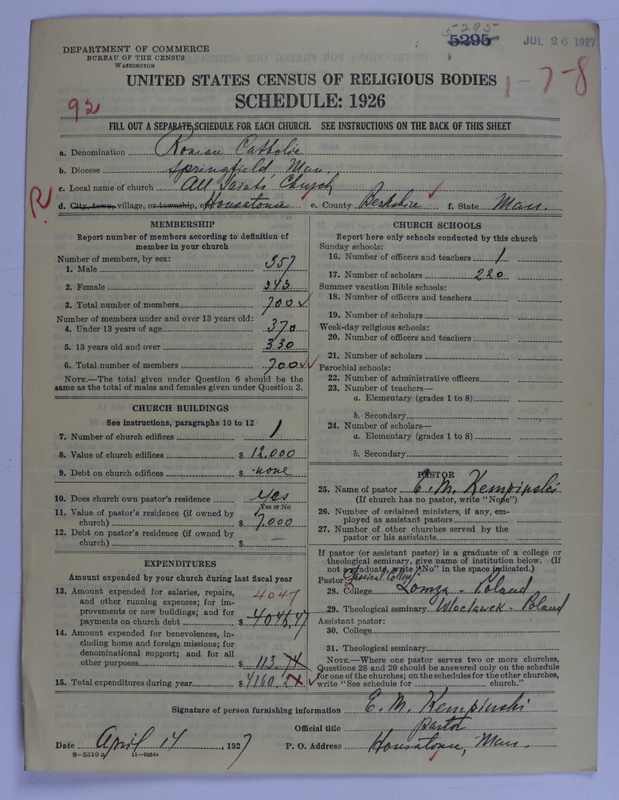 5295
5295 JUL 26 1927
DEPARTMENT OF COMMERCE
BUREAU OF THE CENSUS
WASHINGTON
1-7-8
UNITED STATES CENSUS OF RELIGIOUS BODIES
SCHEDULE: 1926
92
FILL OUT A SEPARATE SCHEDULE FOR EACH CHURCH. SEE INSTRUCTIONS ON THE BACK OF THIS SHEET
a. Denomination Roman Catholic
b. Diocese Springfield, Mass.
c. Local name of church All Saints Church
R d. City, town, village, or township, Housatonic e. County Berkshire f. State Mass.
MEMBERSHIP
Report number of members according to definition of
member in your church
Number of members, by sex:
1. Male 357
2. Female 343
3. Total number of members 700
Number of members under and over 13 years old:
4. Under 13 years of age 370
5. 13 years old and over 330
6. Total number of members 700
NOTE.—The total given under Question 6 should be the
same as the total of males and females given under Question 3.
CHURCH BUILDINGS
See instructions, paragraphs 10 to 12
7. Number of church edifices 1
8. Value of church edifices $ 12,000
9. Debt on church edifices $ none
10. Does church own pastor's residence yes
Yes or No
11. Value of pastor's residence (if owned by
church) $ 7,000
12. Debt on pastor's residence (if owned by
church) $ —
EXPENDITURES
Amount expended by your church during last fiscal year
13. Amount expended for salaries, repairs, 4047
and other running expenses; for im-
provements or new buildings; and for
payments on church debt $ 4046.47
14. Amount expended for benevolences, in-
cluding home and foreign missions; for
denominational support; and for all
other purposes 113.74
15. Total expenditures during year $ 4160.21
CHURCH SCHOOLS
Report here only schools conducted by this church
Sunday schools:
16. Number of officers and teachers 1
17. Number of scholars 220
Summer vacation Bible schools:
18. Number of officers and teachers
19. Number of scholars
Week-day religious schools:
20. Number of officers and teachers
21. Number of scholars
Parochial schools:
22. Number of administrative officers
23. Number of teachers—
a. Elementary (grades 1 to 8)
b. Secondary
24. Number of scholars—
a. Elementary (grades 1 to 8)
b. Secondary
PASTOR
25. Name of pastor E. M. Kempinski
(If church has no pastor, write "None")
26. Number of ordained ministers, if any, em-
ployed as assistant pastors
27. Number of other churches served by the
pastor or his assistants
If pastor (or assistant pastor) is a graduate of a college or
theological seminary, give name of institution below. (If
not a graduate, write "No" in the space indicated.)
Pastor: College
28. College Lomza - Poland
29. Theological seminary Wloclawek - Poland
Assistant pastor:
30. College
31. Theological seminary
NOTE.—Where one pastor serves two or more churches,
Questions 28 and 29 should be answered only on the schedule
for one of the churches; on the schedules for the other churches,
write "See schedule for church."
Signature of person furnishing information E. M. Kempinski
Official title pastor
Date April 14, 1927 P. O. Address Housatonic, Mass.
8-5518 a 11-9024a